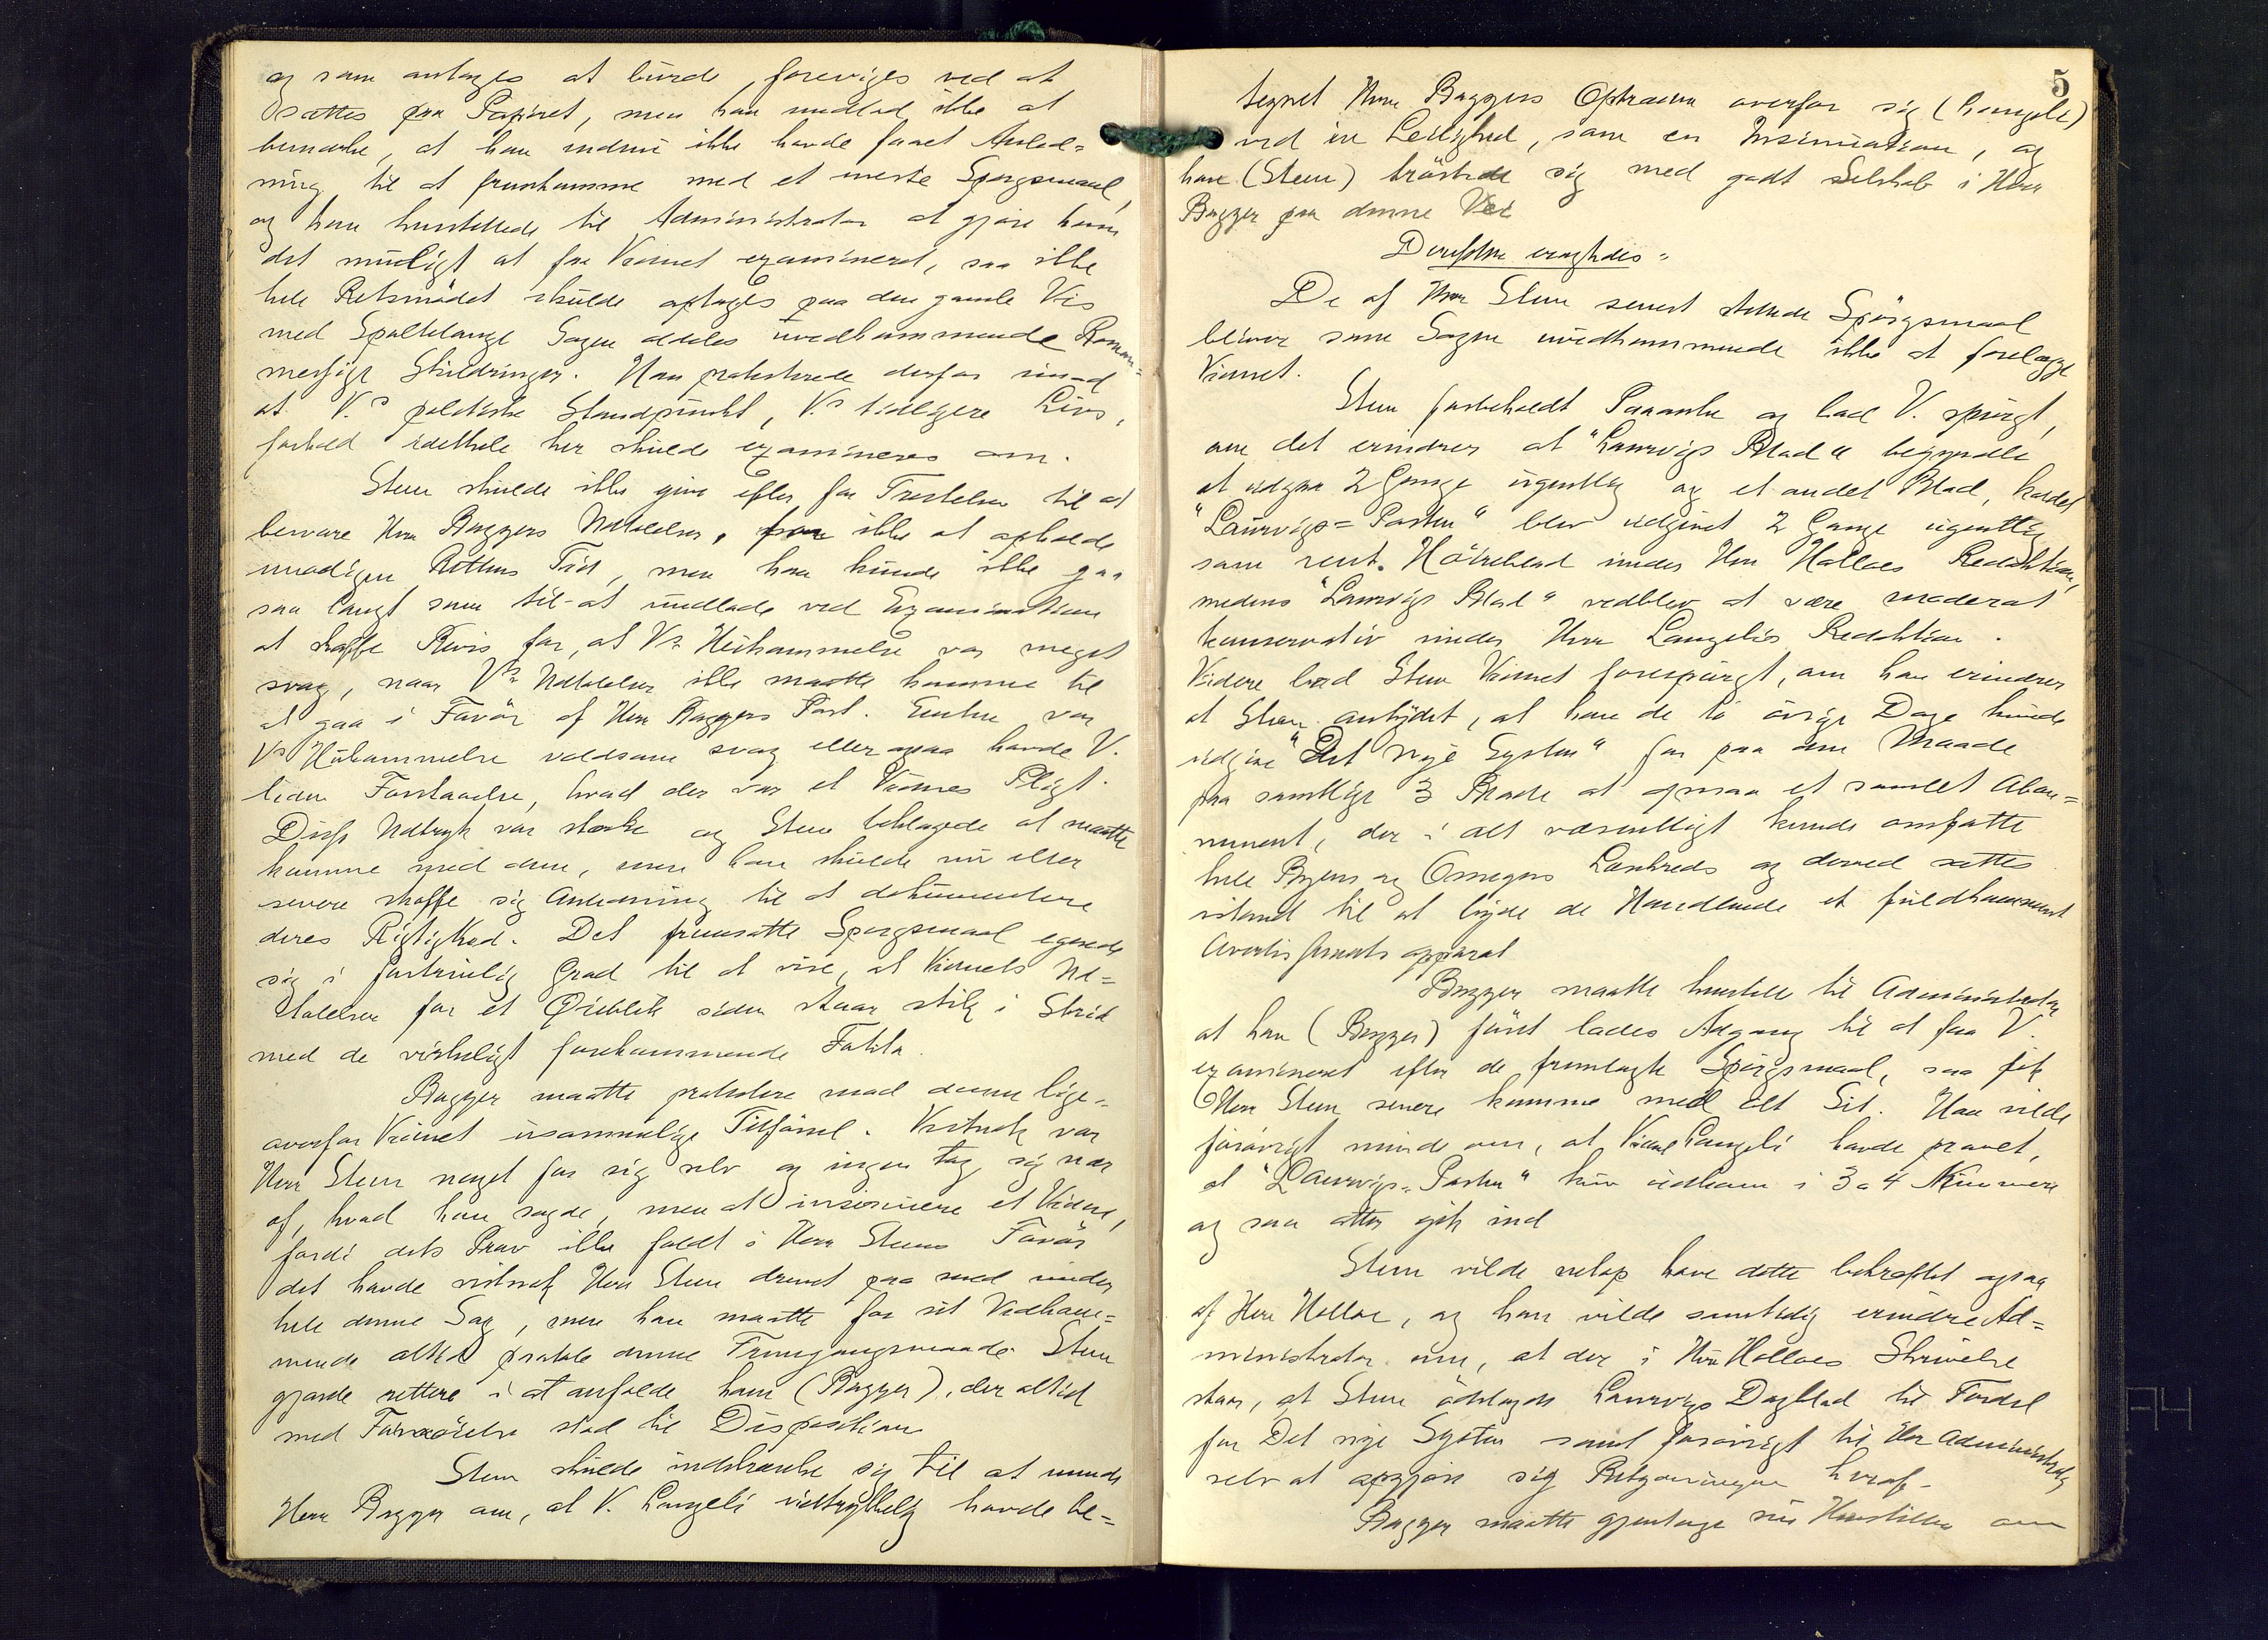 og som antages at burde foreviges ved at
sættes paa Papiret, men han undlod ikke at
bemærke, at han endnu ikke havde faaet Anled=
ning til at fremkomme med et eneste Spørgsmaal,
og han henstillede til Administrator at gjøre ham
det muligt at faa Vidnet examineret, saa ikke
hele Retsmødet skulde optages paa den gamle Vis
med Spaltelange Sagen aldeles uvedkommende Roman=
mæssige Skildringer. Han protesterede derfor imod
at V.s politiske Standpunkt, V.s tidligere Livs,
forhold idethele her skulde examineres om.
Steen skulde ikke give efter for Fristelsen til at
besvare Herr Baggers Udtalelser, for ikke at opholde
unødigen Rettens Tid, men han kunde ikke gaa
saa langt som til at undlade ved Examination
at skaffe Bevis for, at V.s Hukommelse var meget
svag, naar V.s Udtalelser ikke maatte komme til
at gaa i Favør af Herr Baggers Part. Enten var
V.s Hukommelse voldsom svag eller ogsaa havde V.
liden Forstaaelse, hvad der var et Vidnes Pligt.
Disse Udtryk var stærke og Steen beklagede at maatte
komme med dem, men han skulde nu eller
senere skaffe sig Anledning til at dokumentere
deres Rigtighed. Det fremsatte Spørgsmaal egnede
sig i fortrinlig Grad til at vise, at Vidnets Ud=
talelser for et Øieblik siden staar stik i Strid
med de virkeligt forekommende Fakta.
Bagger maatte protestere mod denne lige=
overfor Vidnet usømmelige Tilførsel. Vistnok var
Herr Steen noget for sig selv og ingen tog sig nær
af, hvad han sagde, men at insinuere et Vidne,
fordi dets Prov ikke faldt i Herr Steens Favør
det havde vistnok Herr Steen drevet paa med under
hele denne Sag, men han maatte for sit Vedkom=
mende altid paatale denne Fremgangsmaade. Steen
gjorde rettere i at anfalde ham (Bagger), der altid
med Fornøielse stod til Disposition
Steen skulde indskrænke sig til at minde
Herr Bagger om, at V. Langeli udtrykkelig havde be=
5
tegnet Herr Baggers Optræden overfor sig (Langeli)
ved en Leilighed, som en Insinuation, og
han (Steen) trøstede sig med godt Selskab i Herr
Bagger paa denne Vei
Dereften eragtedes:
De af Herr Steen senest stillede Spørgsmaal
bliver som Sagen uvedkommende ikke at forelægge
Vidnet.
Steen forbeholdt Paaanke og bad V. spurgt,
om det erindrer at "Laurvigs Blad" begyndte
at udgaa 2 Gange ugentlig og et andet Blad, kaldet
"Laurvigs=Posten" blev udgivet 2 Gange ugentlig
som rent Høireblad under Herr Hallaes Redaktion,
medens "Laurvigs Blad" vedblev at være moderat
konservativ under Herr Langelis Redaktion.
Videre bad Steen Vidnet forespurgt, om han erindrer
at Steen antydet, at han de to øvrige Dage kunde
udgive "Det nye System" for paa den Maade
paa samtlige 3 Blade at opnaa et samlet Abon=
nement, der i alt væsentligt kunde omfatte
hele Byens og Omegns Læskreds og derved sættes
istand til at byde de Handlende et fuldkomment
Avertissements apparat
Bagger maatte henstille til Administrator
at han (Bagger) først lades Adgang til at faa V.
examineret efter de fremlagte Spørgsmaal, saa fik
Herr Steen senere komme med alt Sit. Han vilde
forøvrigt minde om, at Vidnet Langeli havde provet,
at "Laurvigs=Posten" kun udkom i 3 a 4 Numere
og saa atter gik ind
Steen vilde netop have dette bekræftet ogsaa
af Herr Hallae, og han vilde samtidig erindre Ad=
ministrator om, at der i Herr Hallaes Skrivelse
staar, at Steen ødelagde Laurvigs Dagblad til Fordel
for Det nye System samt forøvrigt til Her Administrator
selv at opgjøre sig Betydningen heraf.
Bagger maatte gjentage sin Henstillen om